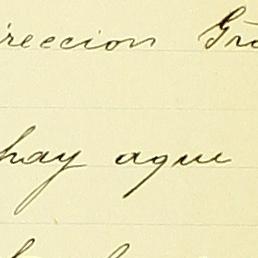 ireccion Gra
hay aque